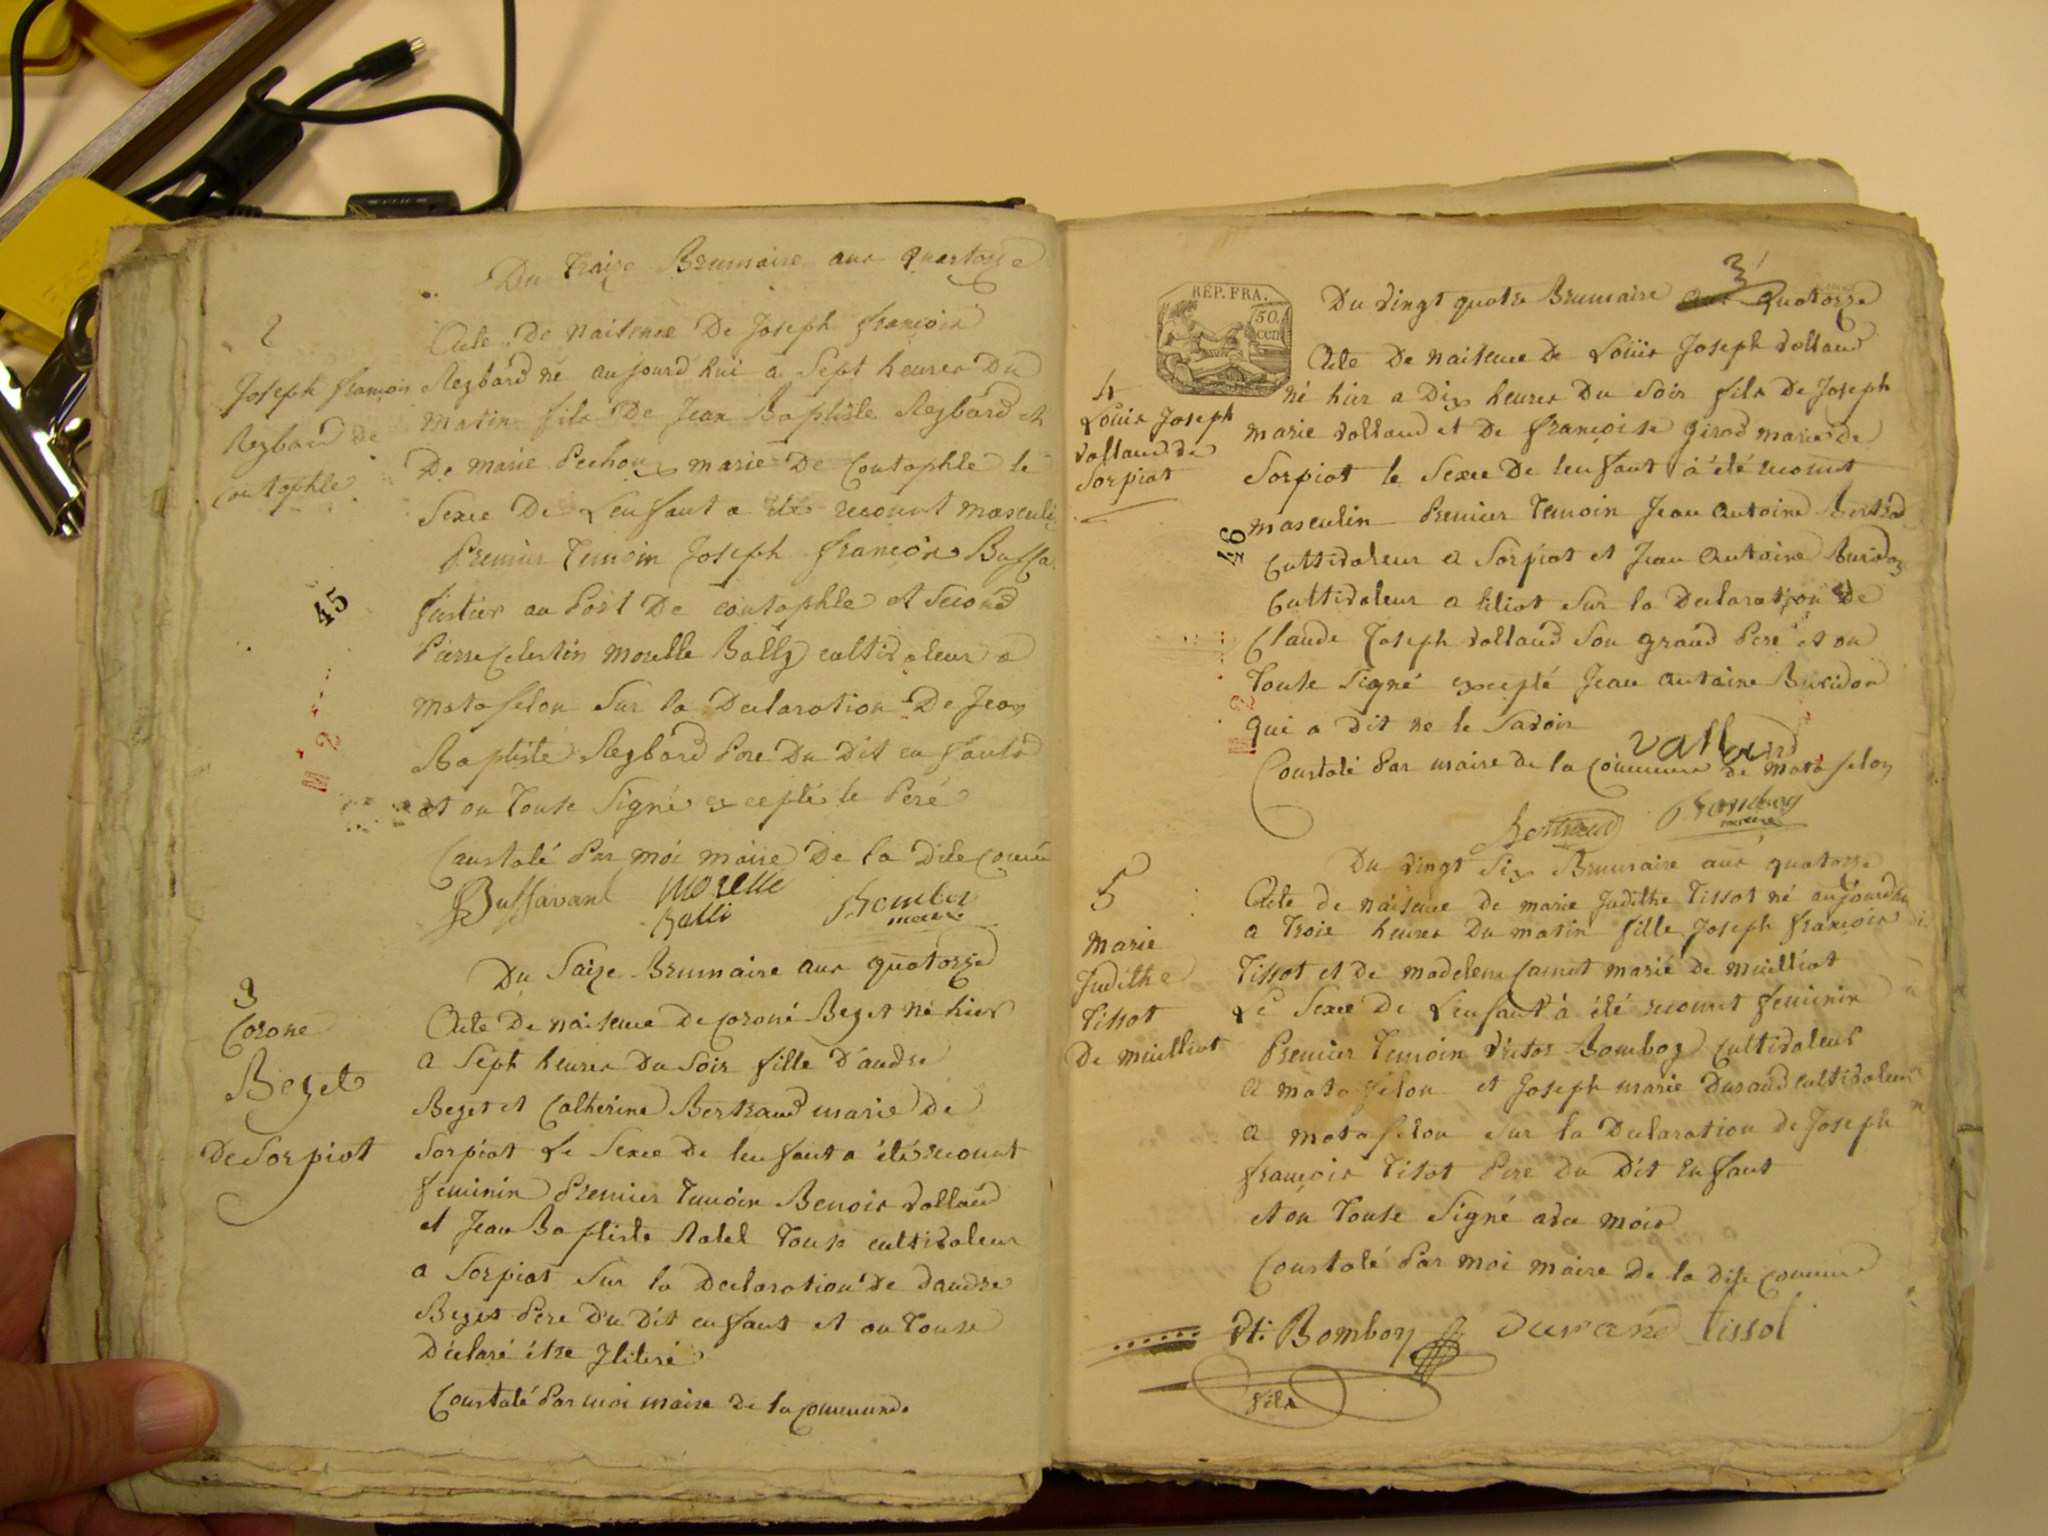 Du traize Brumaire anr quatorze
2
Joseph françois
Regbard de
Coutophle
Acte De naisence De Joseph françois
Regbard né aujourd hui a Sept heures Du
matin fils De Jean Baptiste Regbard et
De marie Pechoux marié De Coutophle le
Sexe De Lenfant a été reconnt masculi
Premier temoin Joseph françois Buffa
fustier au Port De Coutophle et Second
Pierre Celestin morelle Bally cultivateur a
matafelon Sur la Declaration De Jean
Baptiste Regbard Pere Du Dit enfant
et on Touse Signé excepté le Peré
Constalé Par moi maire De la Dite
45
Buffavant morelle Bomboy
Balli maire
Du Saize Brumaire anr quatorze
3
Corone
Beget
De Sorpiat
Acte De naisence de coroné Beget né hier
a Sept heures Du Soir fille D'andre
Beget et Catherine Bertrand marié de
Sorpiat Le Sexe De lenfant a été reconnt
feminin Premier temoin Benoir volland
et Jean Baptiste Ratel Touse cultivateur
a Sorpiat Sur la Declaration De Dandre
Beget Pere Du Dit enfant et on Touse
Déclaré étre Jliteré
Constalé Par moi maire De la Commune
3
RÉP. FRA.
50.
cen
Du vingt quatre Brumaire anr Quatorze
4
Louis Joseph
volland de
Sorpiat
Acte De naisence De Loüis Joseph volland
né hier a Dix heures Du Soir fils De Joseph
marie volland et De françoise girod marié de
Sorpiat le Sexe De lenfant à été reconnt
masculin Premier temoin Jean Antoine Bertrad
Cultivateur a Sorpiat et Jean Antoine Buridon
Cultivateur a Miliat Sur la Declaration De
Claude Joseph volland Son grand Pere et on
Touse Signé excepté Jean Antoine Buridon
qui a dit ne le Savoir
46
volland
Constalé Par maire de la Commune de matafelon
Bertrand Bomboy
maire
Du vingt Six Brumaire anr quatorze
5
Marie
Judithe
Tissot
De miilliat
Acte de naisence de marie Judithe Tissot né aujourdhui
a Trois heures Du matin fille Joseph françois
Tissot et de madelene Carnet marié de miilliat
Le Sexe de Lenfant à été reconnt feminin
Premier temoin victor Bomboy Cultivateur
a matafelon et Joseph marie Durand cultivateur
a matafelon Sur la Declaration de Joseph
françois Tisot Pere Du Dit Enfant
et on Touse Signé avec moi
Constalé Par moi maire De la Dite Commune
Vt: Bomboy Durand tissot
fils